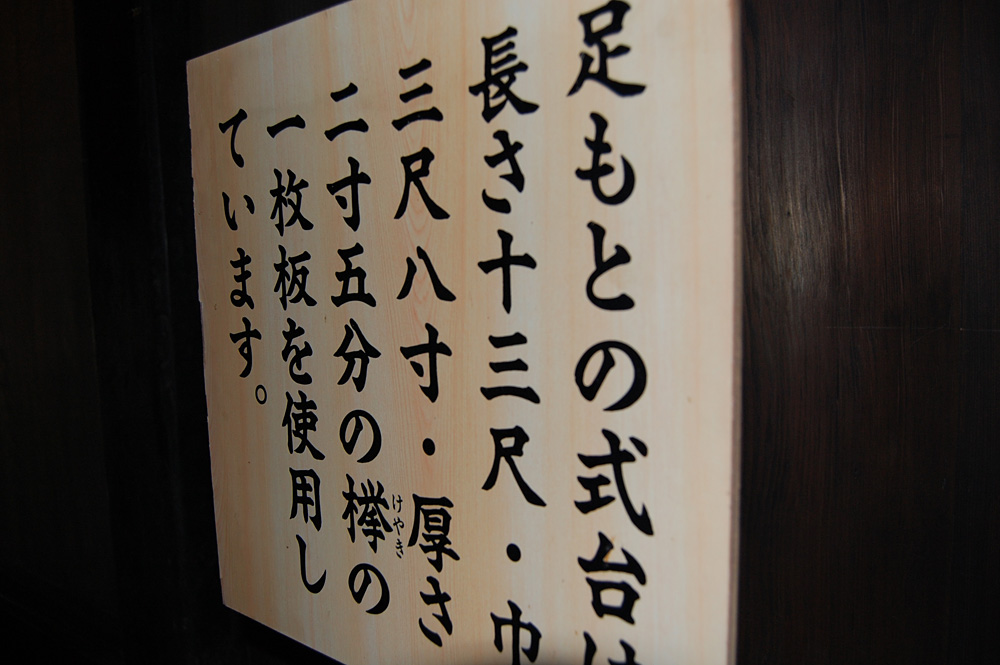 足もとの式台は
長さ十三尺・巾
三尺八寸・厚さ
二寸五分の欅の
けやき
一枚板を使用し
ています。